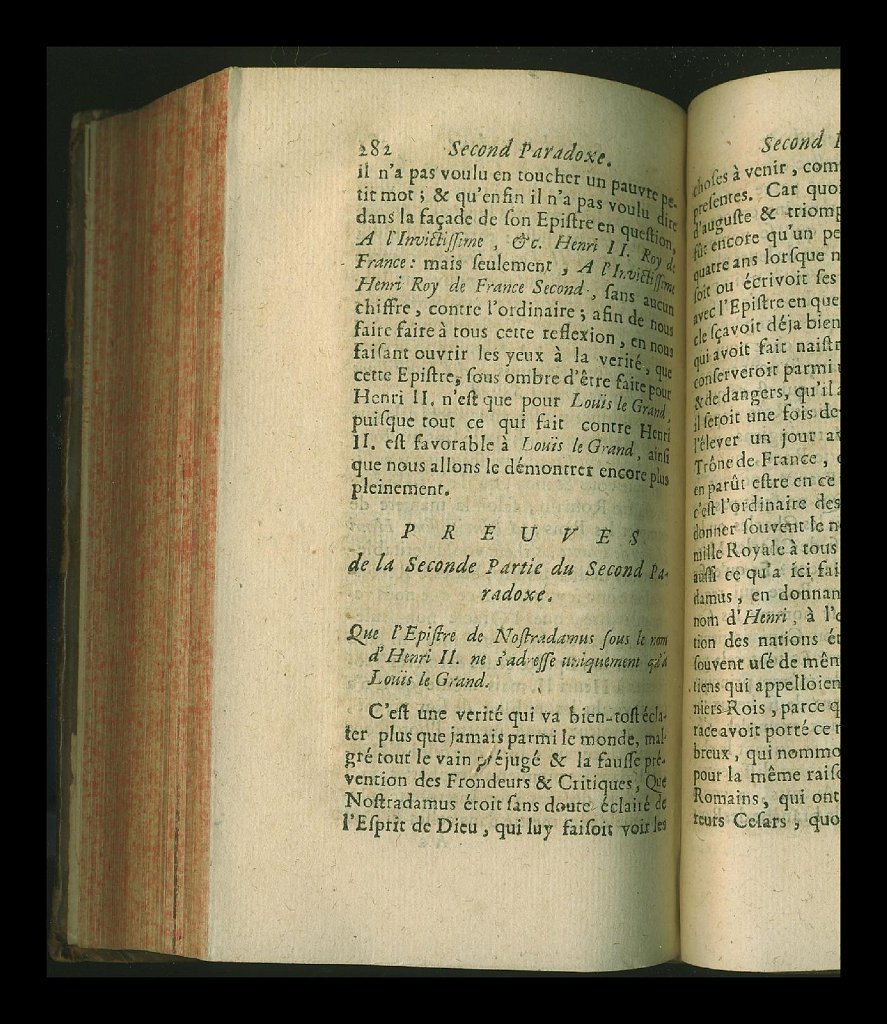 282 Second Paradoxe.
il n'a pas voulu en toucher un pauvre pe-
tit mot ; & qu'enfin il n'a pas voulu dire
dans la façade de ſon Epiſtre en queſtion,
A l'Invictiſſime , &c. Henri II. Roy de
France : mais ſeulement , A l'Invictiſſime
Henri Roy de France Second , ſans aucun
chiffre , contre l'ordinaire ; afin de nous
faire faire à tous cette reflexion , en nous
faiſant ouvrir les yeux à la verité , que
cette Epiſtre, ſous ombre d'être faite pour
Henri II. n'eſt que pour Louïs le Grand,
puiſque tout ce qui fait contre Henri
II. eſt favorable à Louïs le Grand , ainſi
que nous allons le démontrer encore plus
pleinement.
P R E U V E S
de la Seconde Partie du Second Pa-
radoxe.
Que l'Epiſtre de Noſtradamus ſous le nom
d'Henri II. ne s'adreſſe uniquement qu'à
Louïs le Grand.
C'eſt une verité qui va bien-toſt écla-
ter plus que jamais parmi le monde, mal-
gré tout le vain préjugé & la fauſſe pré-
vention des Frondeurs & Critiques, Que
Noſtradamus étoit ſans doute éclairé de
l'Eſprit de Dieu , qui luy faiſoit voir les
Second
choſes à venir , com
preſentes. Car quo
d'auguſte & triomp
fût encore qu'un pe
quatre ans lorſque n
ſoit ou écrivoit ſes
avec l'Epiſtre en que
cle ſçavoit déja bien
qui avoit fait naiſtr
conſerveroit parmi
& de dangers, qu'il
il ſeroit une fois de
l'élever un jour au
Trône de France ,
en parût eſtre en ce
c'eſt l'ordinaire des
donner ſouvent le n
mille Royale à tous
auſſi ce qu'a ici fai
damus , en donnan
nom d'Henri , à l'
tion des nations ét
ſouvent uſé de mêm
tiens qui appelloien
niers Rois , parce q
race avoit porté ce
breux , qui nommo
pour la même raiſ
Romains , qui ont
reurs Ceſars , quo